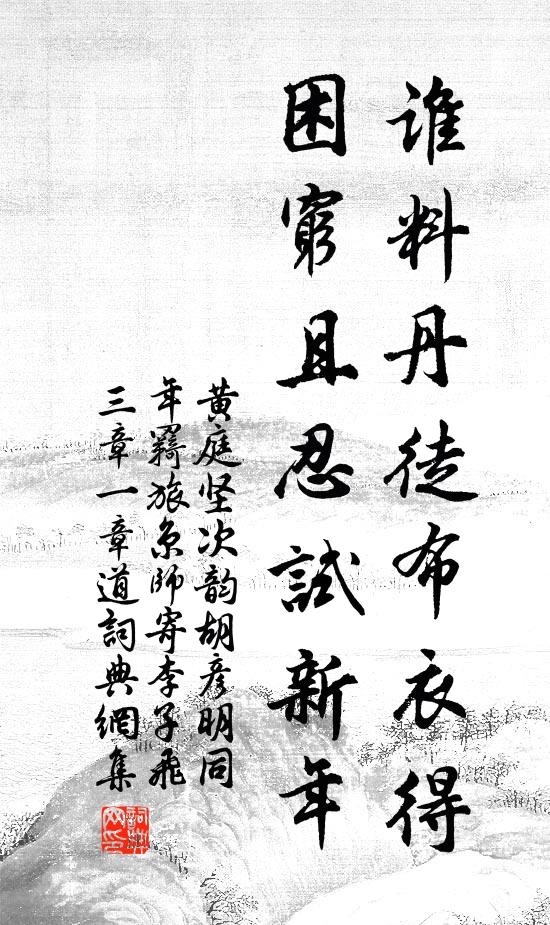 誰料丹徒布衣得
困窮且忍試新年
黄庭坚次韵胡彦明同
年羇旅京師寄李子飛
三章一章道詞典網集